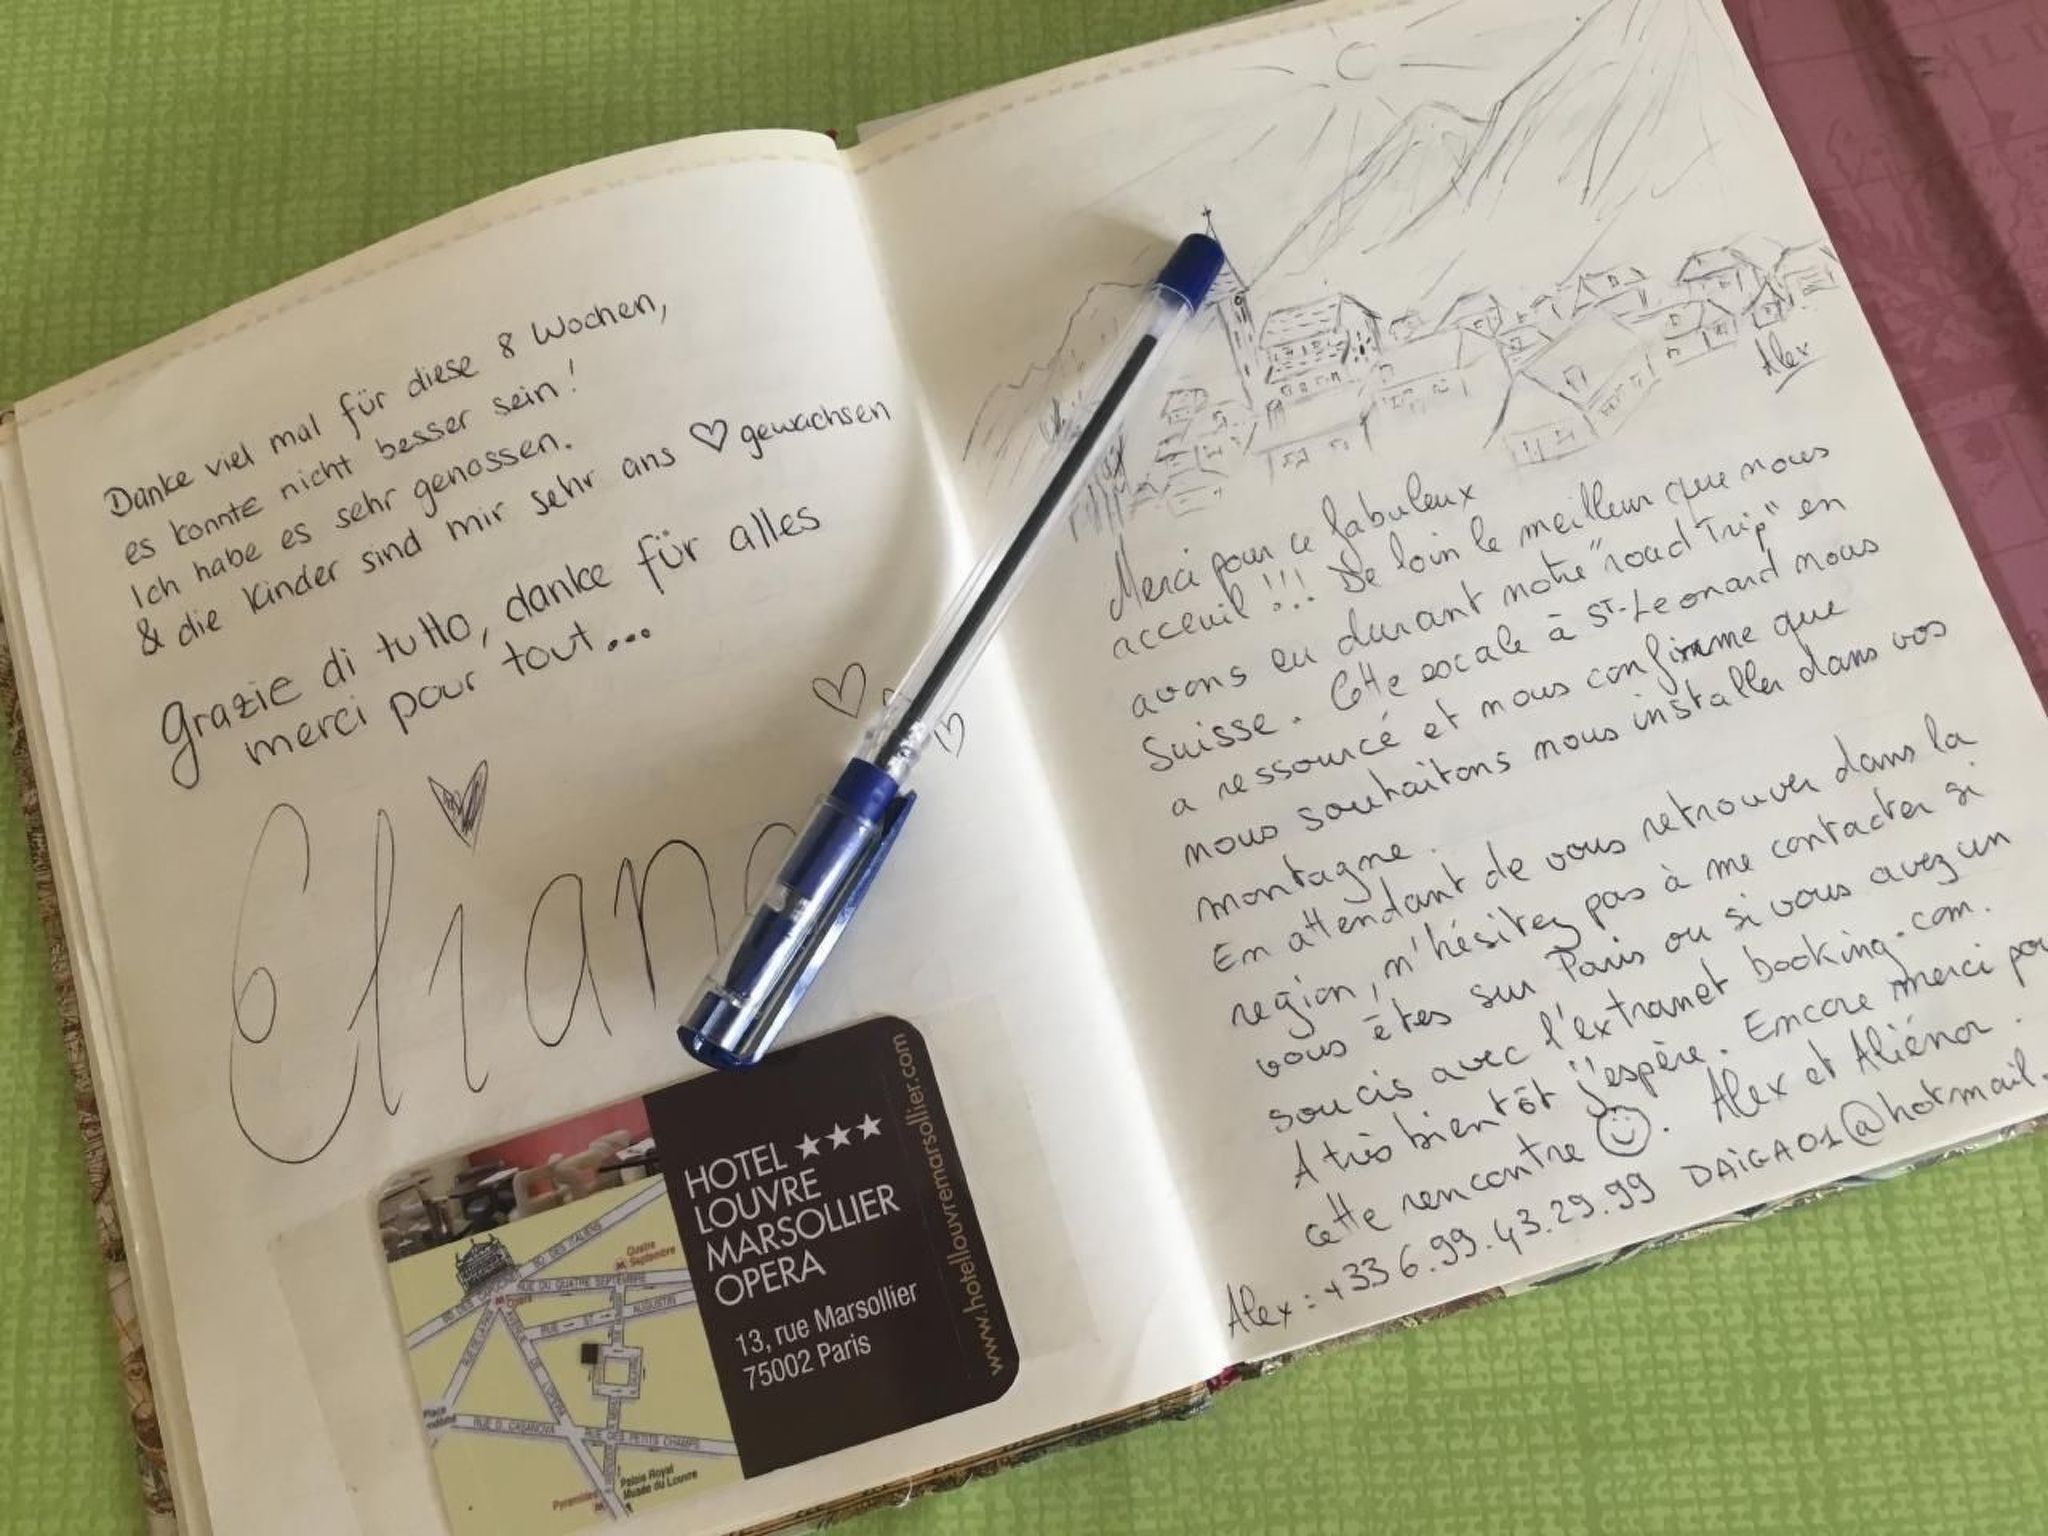 Danke viel mal für diese 8 Wochen,
es konnte nicht besser sein!
Ich habe es sehr genossen.
& die Kinder sind mir sehr ans ♡ gewachsen
Grazie di tutto, danke für alles
merci pour tout...
Elian
HOTEL ★★★
LOUVRE
MARSOLLIER
OPERA
13, rue Marsollier
75002 Paris
www.hotellouvremarsollier.com
BD DES ITALIENS
Quatre
Septembre
RUE DU QUATRE SEPTEMBRE
AUGUSTIN
RUE D. CASANOVA
RUE DES PETITS CHAMPS
Place
Palais Royal
Musée du Louvre
Pyramides
Alex
Merci pour ce fabuleux
acceuil !!! De loin le meilleur que nous
avons eu durant notre "road Trip" en
Suisse. Cette escale à ST-Leonard nous
a ressourcé et nous confirme que
nous souhaitons nous installer dans vos
montagne.
En attendant de vous retrouver dans la
region, n'hésitez pas à me contacter si
vous êtes sur Paris ou si vous avez un
soucis avec l'extranet booking.com.
A très bientôt j'espère. Encore merci pou
cette rencontre ☺. Alex et Aliénor.
Alex : +33 6.99.43.29.99 DAiGA01@hotmail.